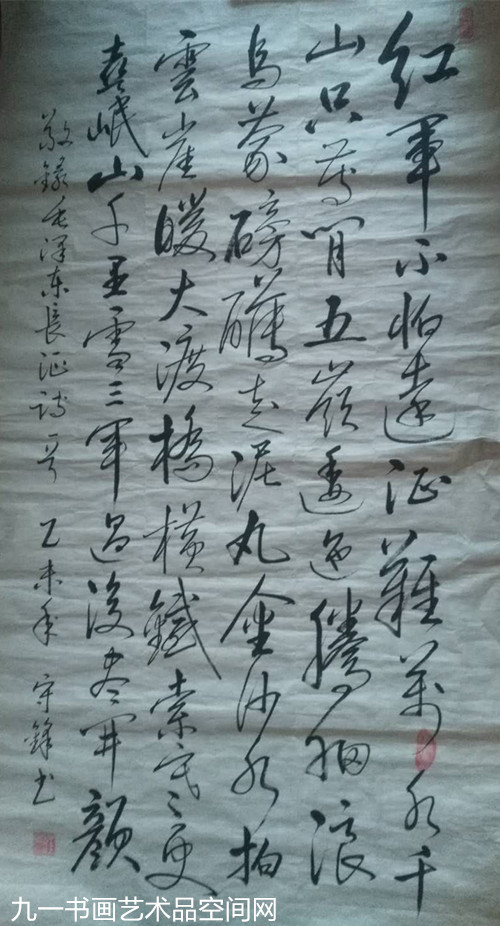 红軍不怕遠征難萬水千
山只等閒五嶺逶迤騰細浪
烏蒙磅礴走泥丸金沙水拍
雲崖暖大渡橋横鐵索寒更
喜岷山千里雪三軍過後盡開顔
敬録毛澤东長征詩一首 乙未年 守鋒书
九一书画艺术品空间网